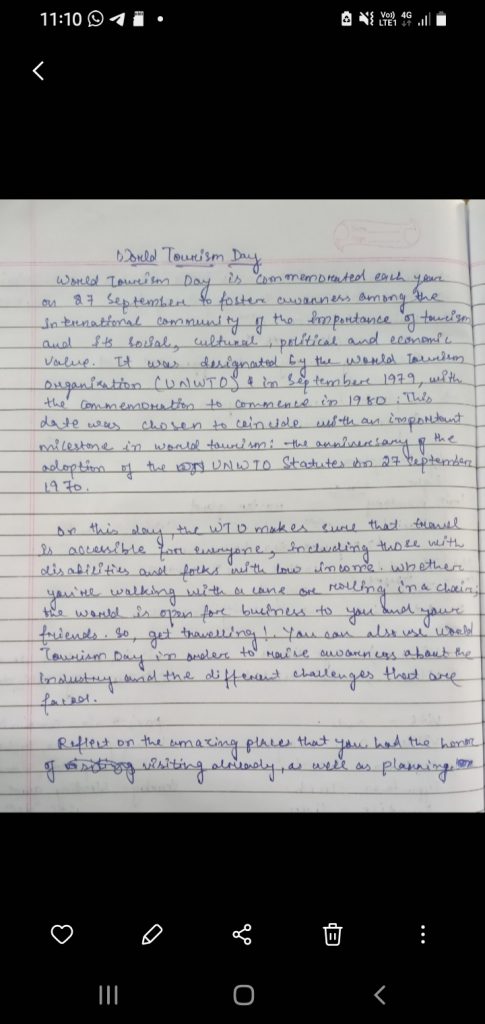 11:10
Vo)) 4G
LTE1
World Tourism Day
World Tourism Day is commemorated each year
on 27 September to foster awarness among the
International community of the importance of tourism
and its social, cultural, political and economic
value. It was designated by the World Tourism
organisation (UNWTO) in September 1979, with
the commemoration to commence in 1980. This
date was chosen to coincide with an important
milestone in world tourism: the anniversary of the
adoption of the UNWTO Statutes on 27 September
1970.
On this day, the WTO makes sure that travel
is accessible for everyone, including those with
disabilities and folks with low income. Whether
you're walking with a cane or rolling in a chair,
the world is open for business to you and your
friends. So, get travelling! You can also use World
Tourism Day in order to raise awarness about the
industry and the different challenges that are
faced.
Reflect on the amazing places that you had the honor
of visiting already, as well as planning